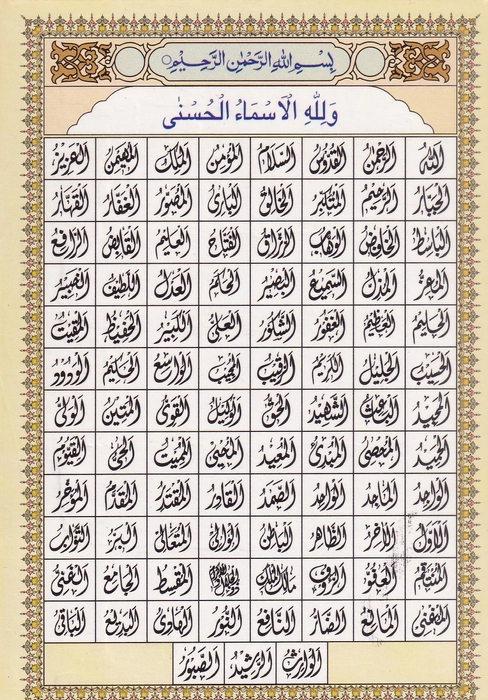 بِسْمِ اللهِ الرَّحْمٰنِ الرَّحِيْمِ
وَلِلّٰهِ الْاَسْمَاءُ الْحُسْنٰى
اللّٰهُ الرَّحْمٰنُ القُدُّوسُ السَّلَامُ المُؤْمِنُ المَلِكُ المُهَيْمِنُ العَزِيزُ
الجَبَّارُ الرَّحِيمُ المُتَكَبِّرُ الخَالِقُ البَارِئُ المُصَوِّرُ الغَفَّارُ القَهَّارُ
البَاسِطُ الخَافِضُ الوَهَّابُ الرَّزَّاقُ الفَتَّاحُ العَلِيمُ القَابِضُ الرَّافِعُ
المُعِزُّ المُذِلُّ السَّمِيعُ البَصِيرُ الحَكَمُ العَدْلُ اللَّطِيفُ الخَبِيرُ
الحَلِيمُ العَظِيمُ الغَفُورُ الشَّكُورُ العَلِيُّ الكَبِيرُ الحَفِيظُ المُقِيتُ
الحَسِيبُ الجَلِيلُ الكَرِيمُ الرَّقِيبُ المُجِيبُ الوَاسِعُ الحَكِيمُ الوَدُودُ
المَجِيدُ البَاعِثُ الشَّهِيدُ الحَقُّ الوَكِيلُ القَوِيُّ المَتِينُ الوَلِيُّ
الحَمِيدُ المُحْصِي المُبْدِئُ المُعِيدُ المُحْيِي المُمِيتُ الحَيُّ القَيُّومُ
الوَاجِدُ المَاجِدُ الوَاحِدُ الصَّمَدُ القَادِرُ المُقْتَدِرُ المُقَدِّمُ المُؤَخِّرُ
الاَوَّلُ الاٰخِرُ الظَّاهِرُ البَاطِنُ الوَالِي المُتَعَالِي البَرُّ التَّوَّابُ
المُنْتَقِمُ العَفُوُّ الرَّءُوفُ مَالِكُ المُلْكِ ذُو الجَلَالِ وَالاِكْرَامِ المُقْسِطُ الجَامِعُ الغَنِيُّ
المُغْنِي المَانِعُ الضَّارُّ النَّافِعُ النُّورُ الهَادِي البَدِيعُ البَاقِي
الوَارِثُ الرَّشِيدُ الصَّبُورُ